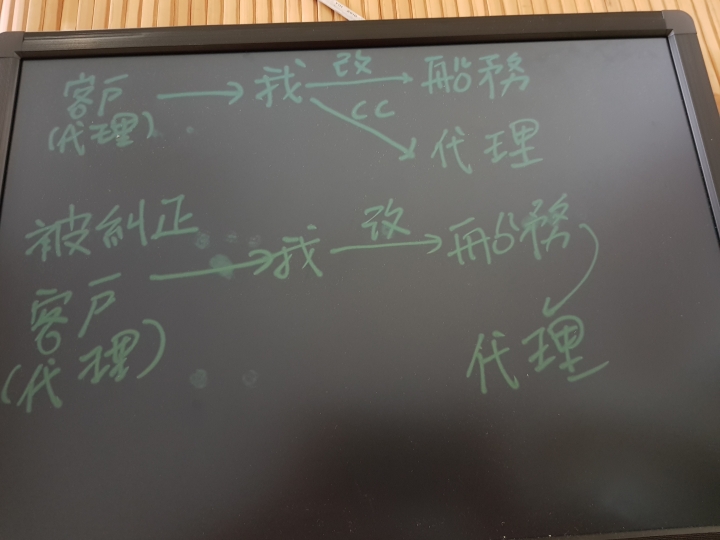 客戶 → 我 改 → 船務
(代理) cc 代理
被糾正
客戶 → 我 改 → 船務
(代理) 代理